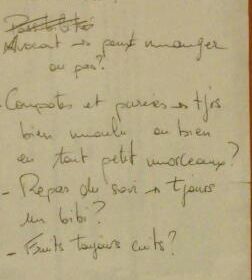 Possibilités
Avocat → peut manger
ou pas?
- Compotes et purées → tjrs
bien moulu ou bien
en tout petit morceaux?
- Repas du soir → tjours
un bibi?
- Fruits toujours cuits?